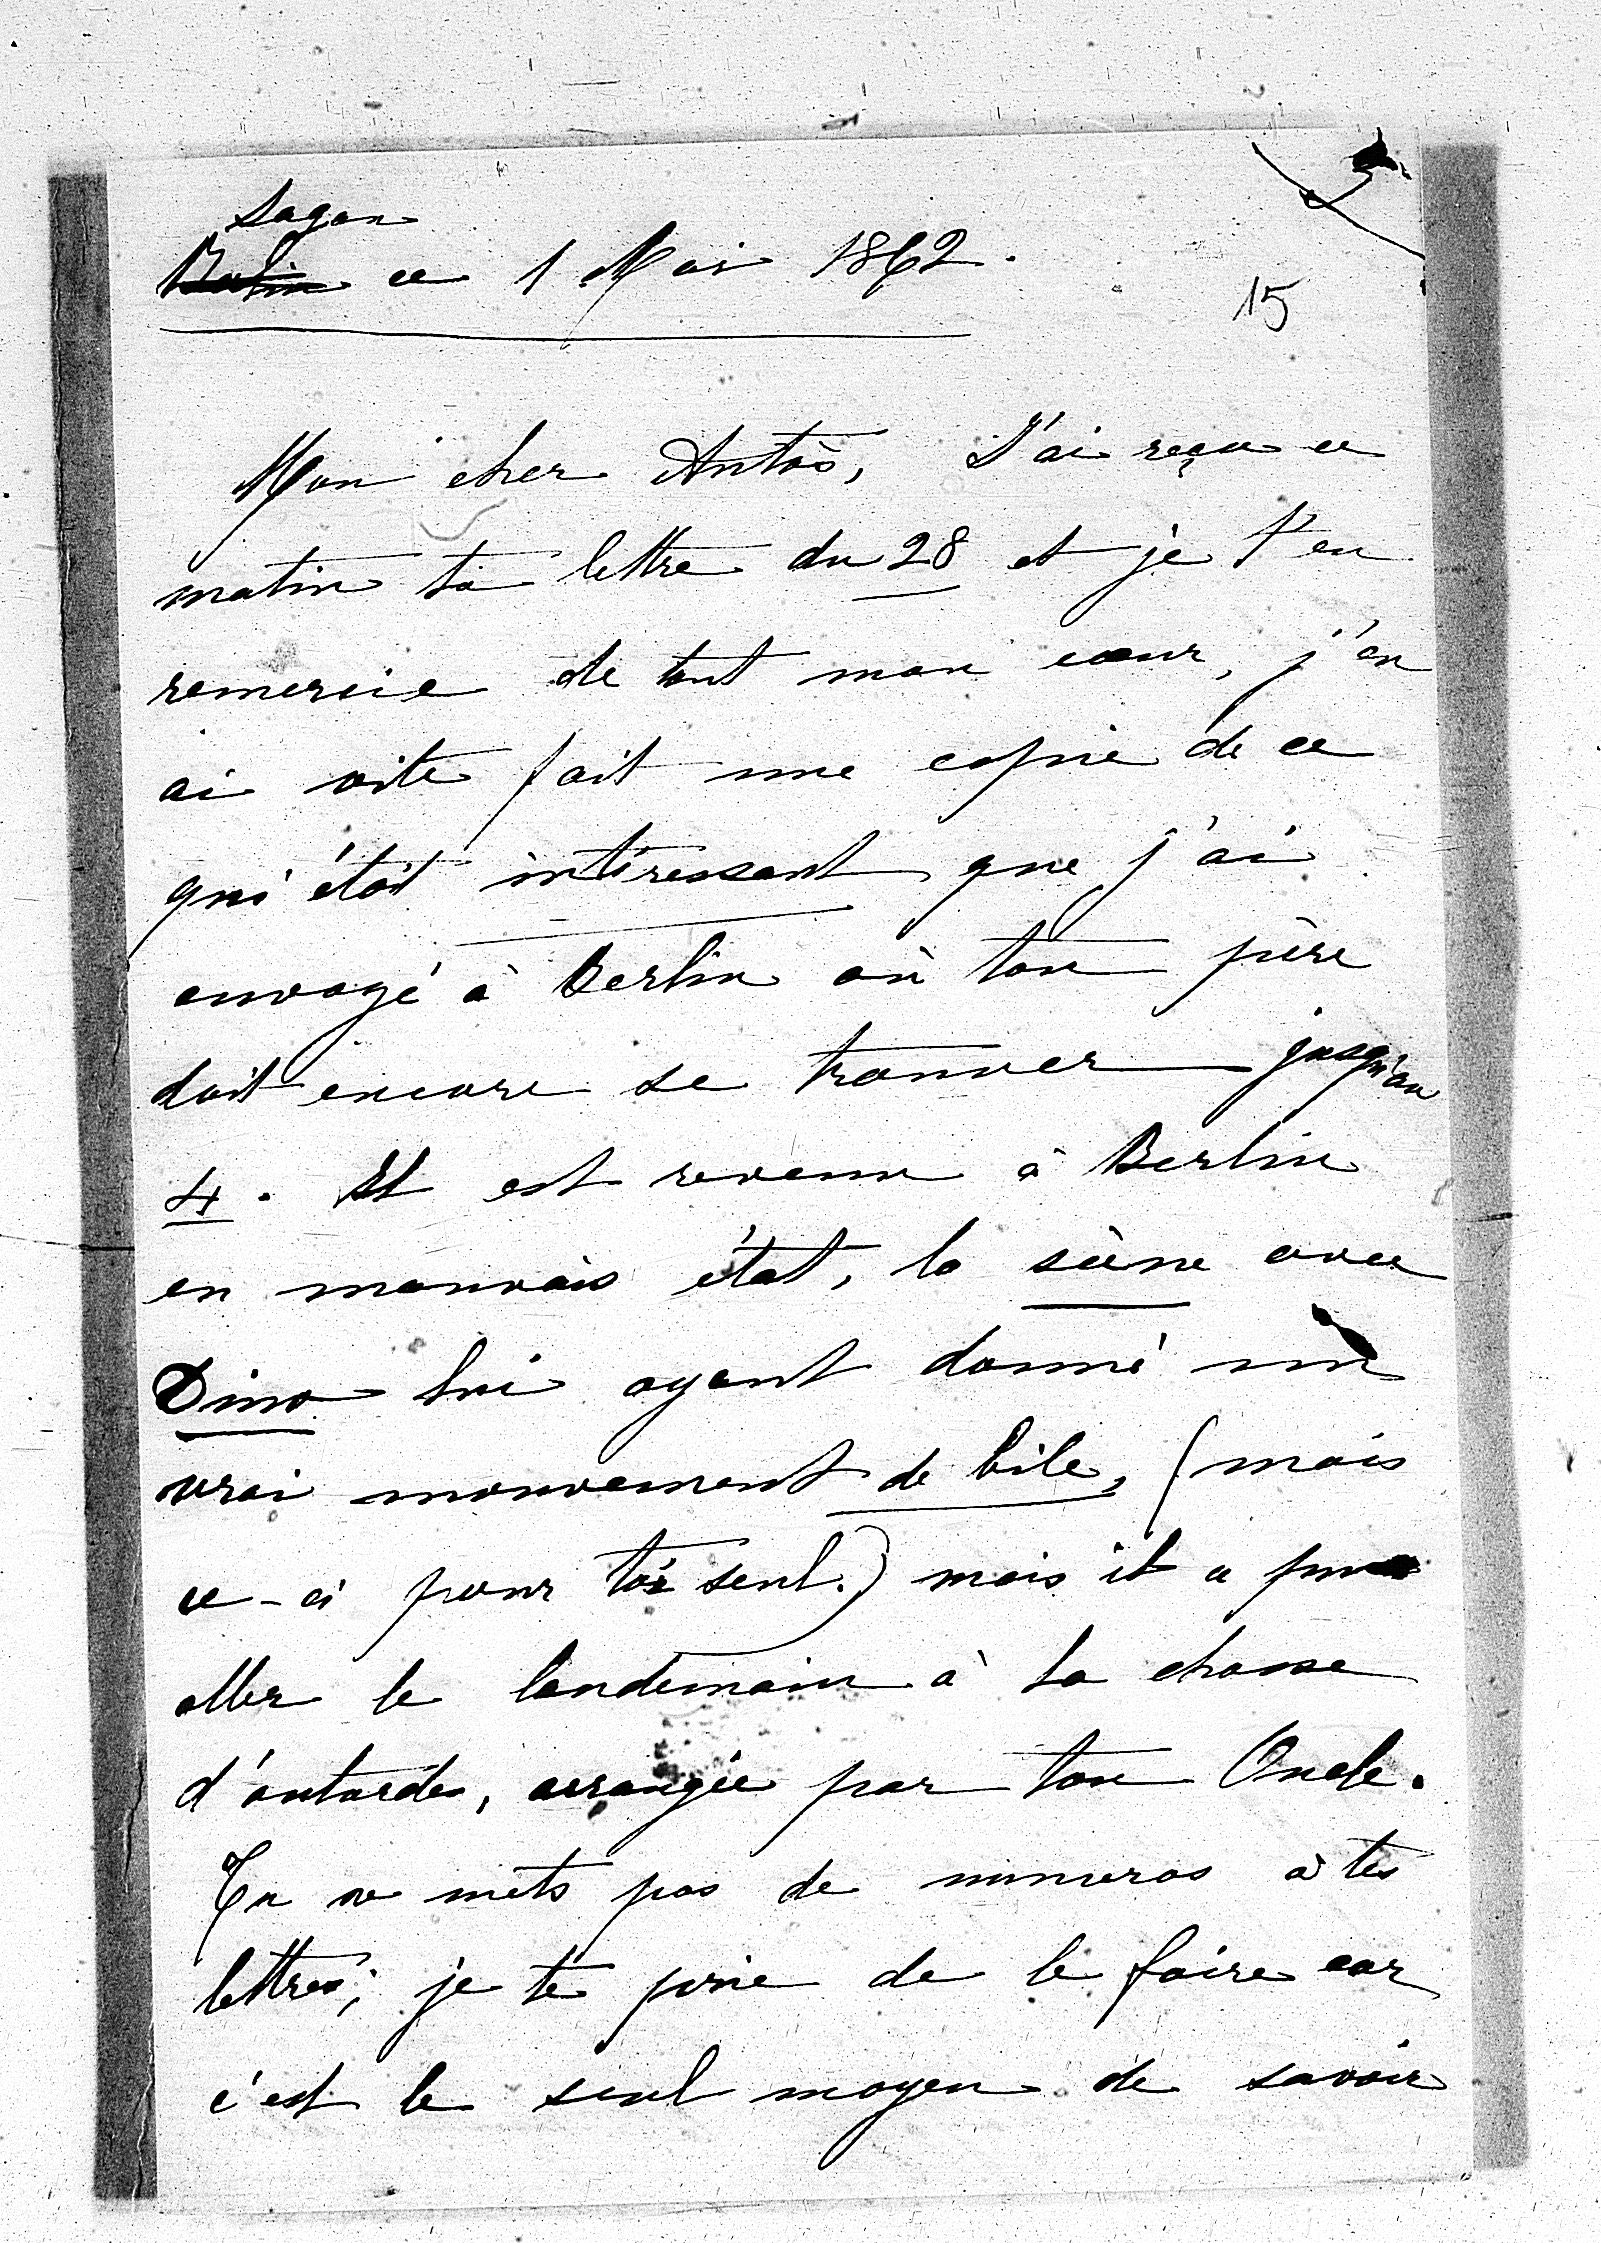 Sagan
Berlin ce 1 Mai 1862.
15
Mon cher Antos, J'ai reçu ce
matin ta lettre du 28 et je t'en
remercie de tout mon cœur, j'en
ai vite fait une copie de ce
qui étoit intéressant que j'ai
envoyé à Berlin où ton père
doit encore se trouver jusqu'au
4. Il est revenu à Berlin
en mauvais état, la scène avec
Dino lui ayant donné un
vrai mouvement de bile, (mais
ce-ci pour toi seul.) mais il a pu
aller le landemain à la chasse
d'outardes, arrangée par ton Oncle.
Tu ne mets pas de numeros à tes
lettres; je te prie de le faire car
c'est le seul moyen de savoir